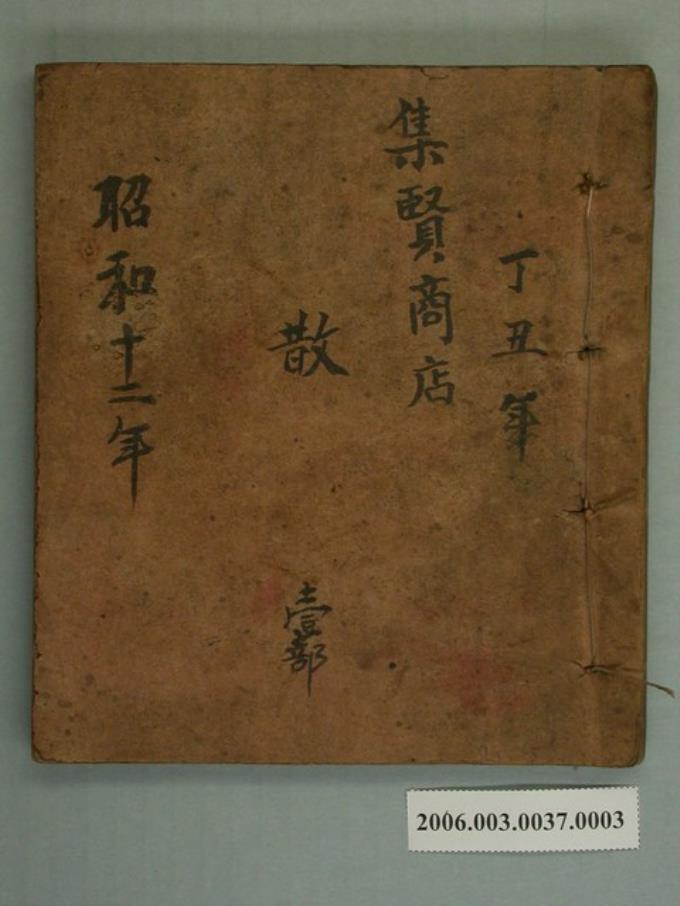 丁丑年
集賢商店
散
壹部
昭和十二年
2006.003.0037.0003